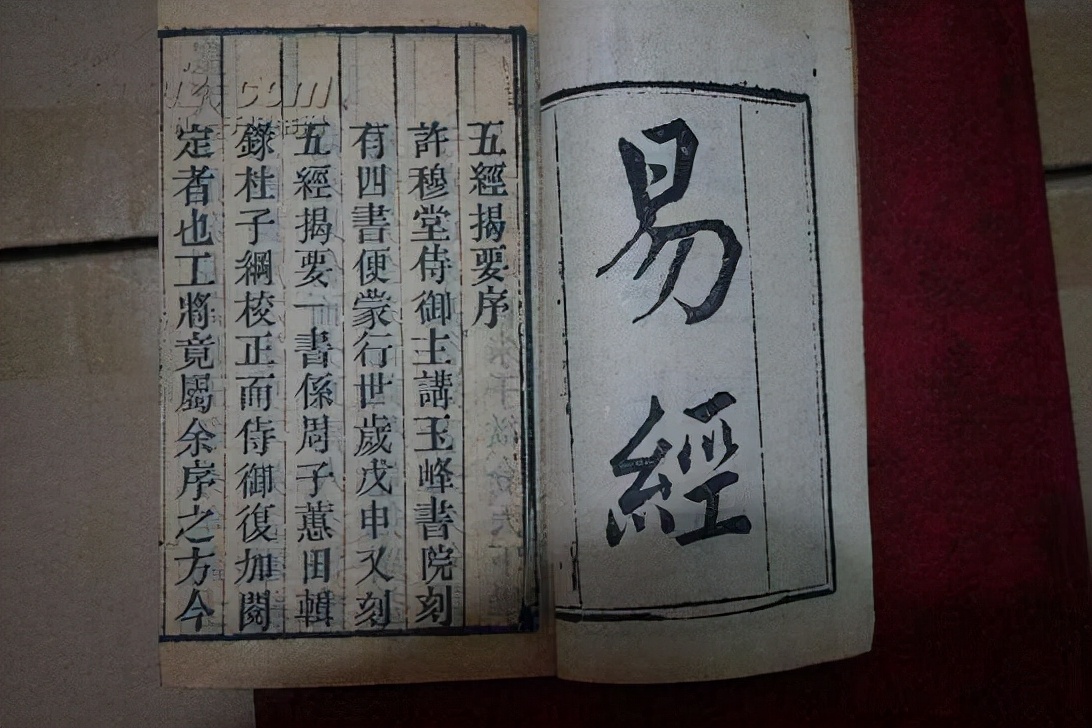 易經
五經揭要序
許穆堂侍御主講玉峰書院刻
有四書便蒙行世歲戊申又刻
五經揭要一書係周子蕙田輯
錄杜子綱校正而侍御復加閱
定者也工將竟屬余序之方今